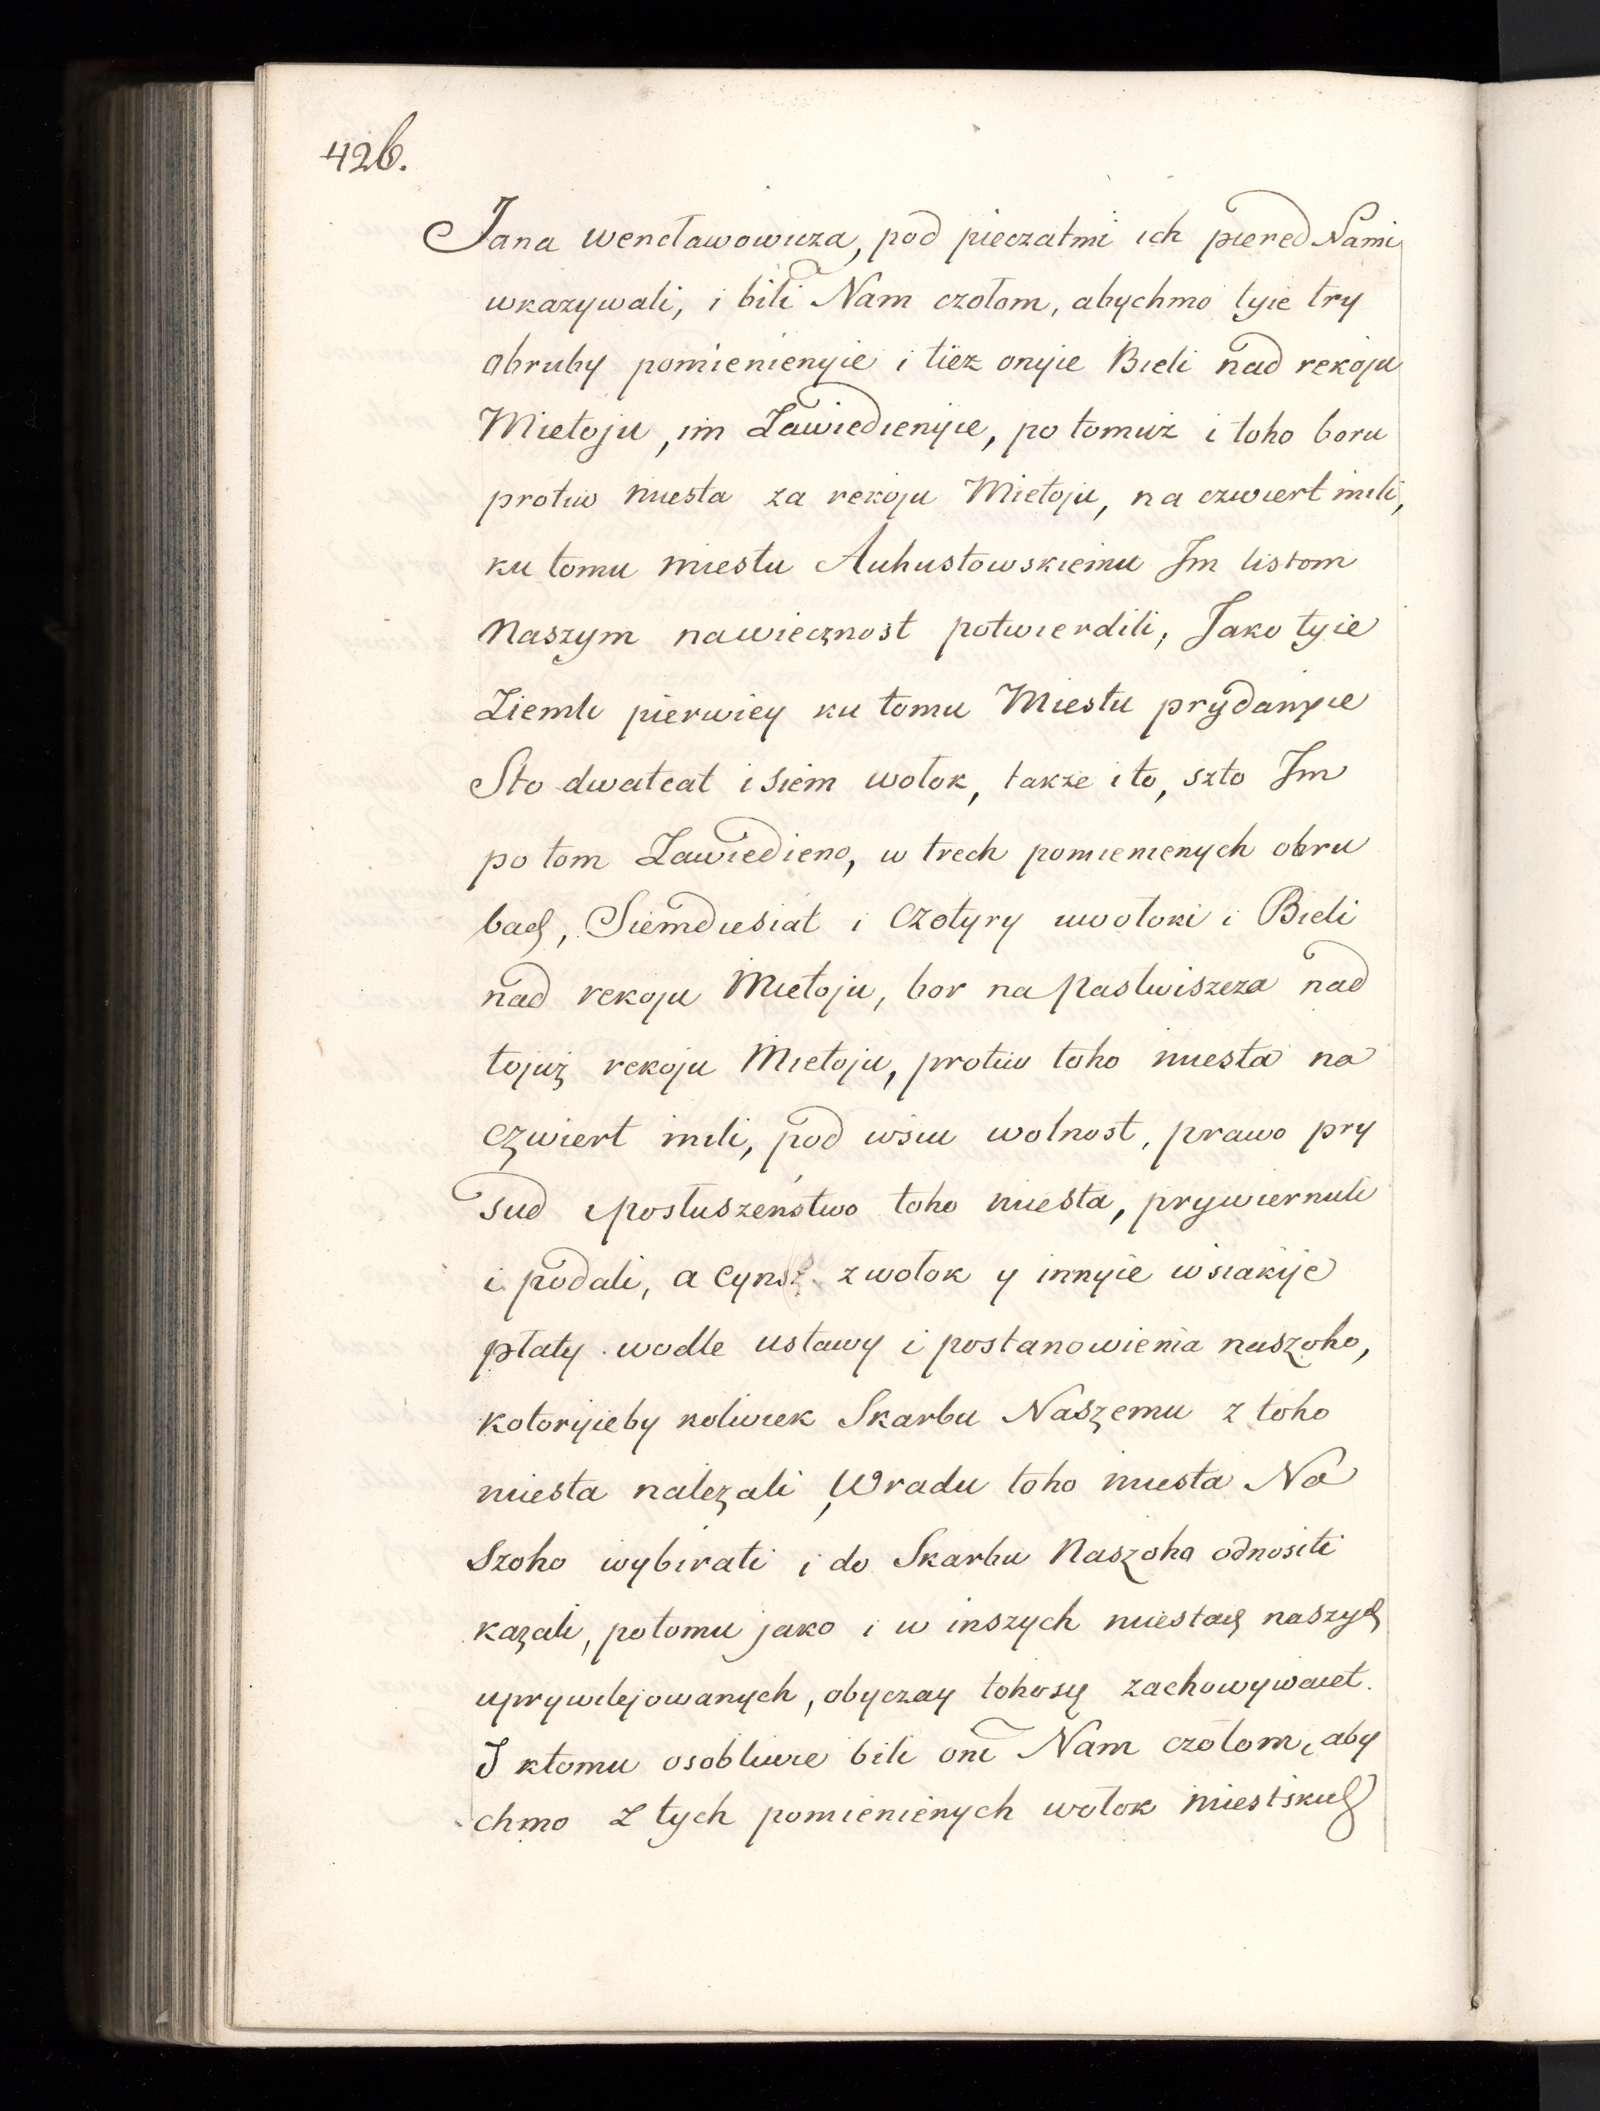 426.
Jana Wencławowicza, pod pieczatmi ich piered Nami
wkazywali, i bili Nam czołom, abychmo tyie try
obruby pomienienyie i tież onyie Bieli nad rekoju
Miełoju, im Zawiedienyie, po tomuż i toho boru
protiw miesta za rekoju Miełoju, na czwiert mili,
ku tomu miestu Auhustowskiemu Im listom
Naszym nawiecznost potwierdili, Jako tyie
Ziemli pierwiey ku tomu Miestu prydanyie
Sto dwatcat i siem wołok, takze i to, szto Im
po tom Zawiedieno, w trech pomienienych obru
bach, Siemdiesiat i czotyry uwołoki i Bieli
nad rekoju Miełoju, bor na pastwiszcza nad
tojuż rekoju Miełoju, protiw toho miesta na
czwiert mili, pod wsiu wolnost, prawo pry
sud i posłuszeństwo toho miesta, prywiernuli
i podali, a cynsz z wołok y innyie wsiakije
płaty wodle ustawy i postanowienia naszoho,
kotoryieby koliwiek Skarbu Naszemu z toho
miesta należali, Wradu toho miesta Na
szoho wybirati i do Skarbu Naszoho odnositi
kazali, potomu jako i w inszych miestach naszych
uprywilejowanych, obyczay tohosy zachowywaiet.
I ktomu osobliwie bili oni Nam czołom, aby
chmo z tych pomienienych wołok miestskich